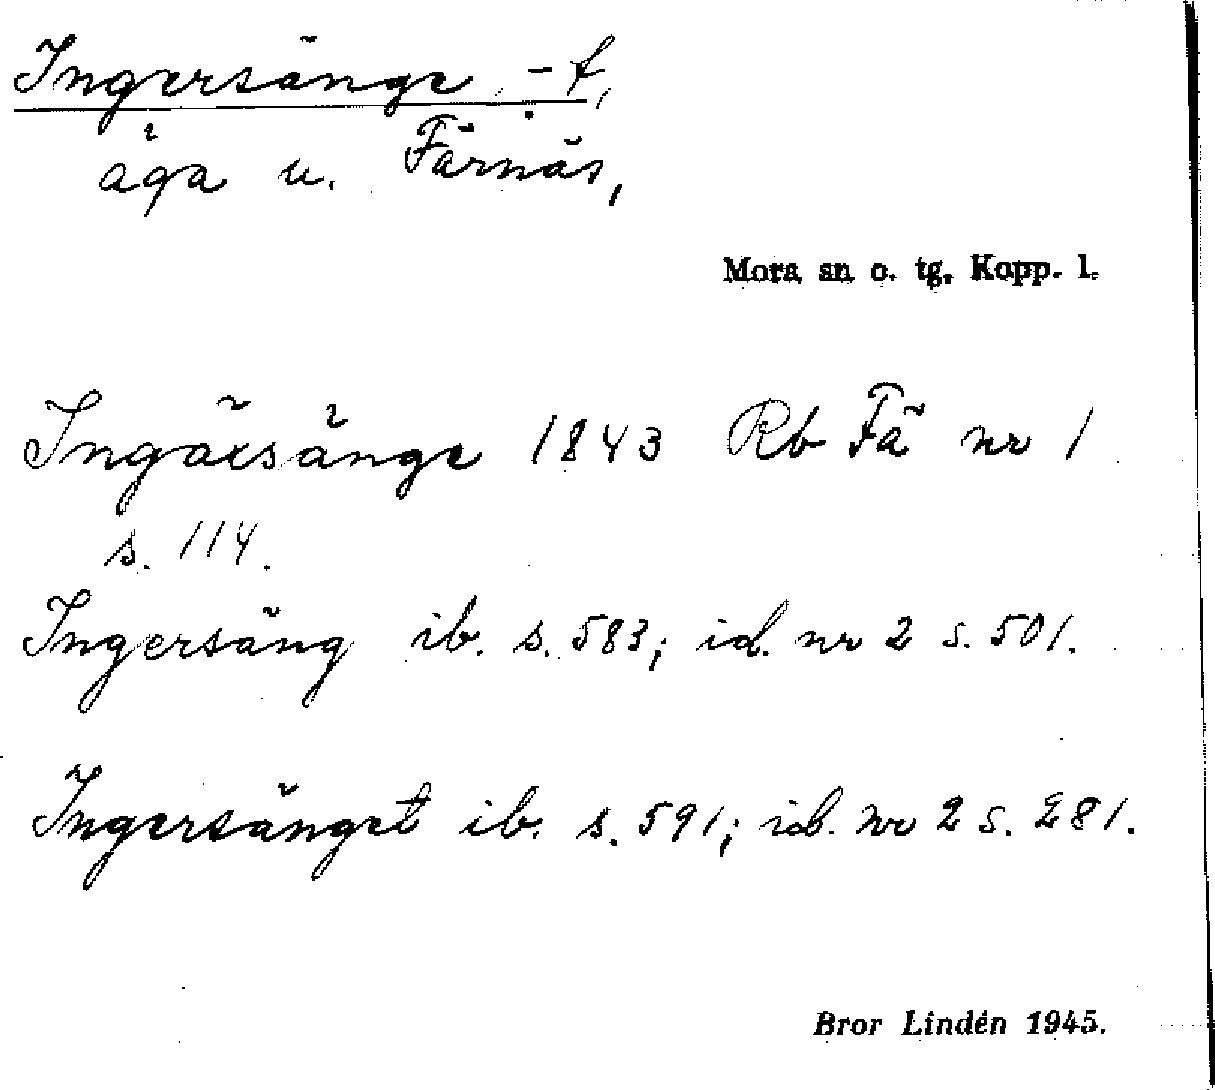 Ingersänge, -t,
äga u. Färnäs,
Mora sn o. tg. Kopp. l.
Ingärsänge 1843 Rb Fä nr 1
s. 114.
Ingersäng ib. s. 583; id. nr 2 s. 501.
Ingersänget ib. s. 591; ib. nr 2 s. 281.
Bror Lindén 1945.